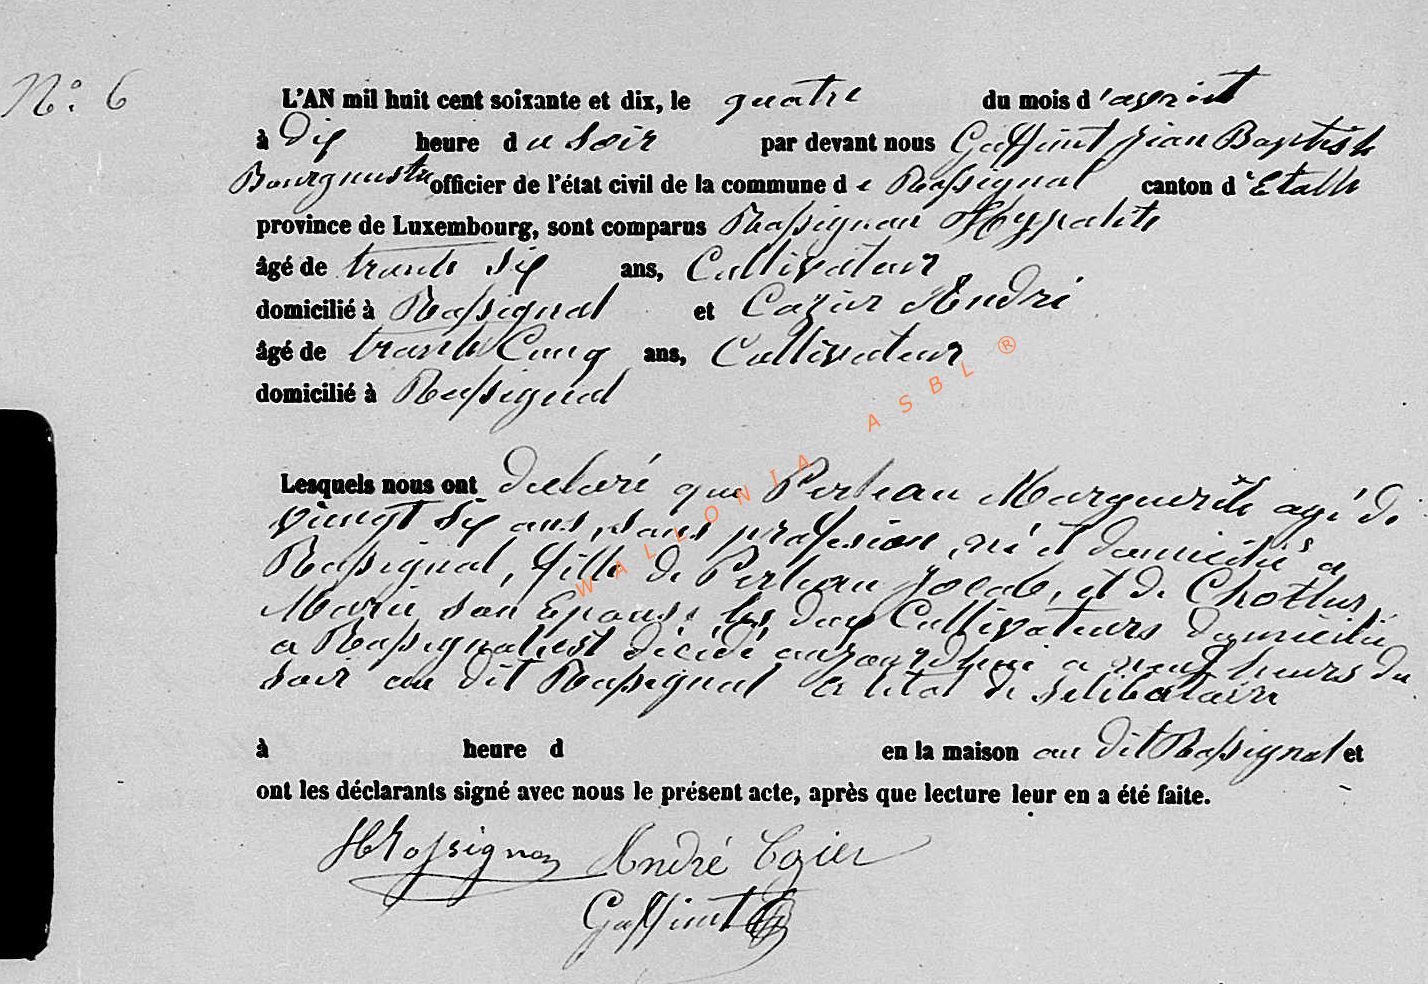 N°. 6
L'AN mil huit cent soixante et dix, le quatre du mois d'
à Dix heure du soir par devant nous Gaffinet Jean Baptiste
Bourgmestre officier de l'état civil de la commune de Rossignol canton d'Etalle
province de Luxembourg, sont comparus Rossignon Hyppolite
âgé de trente Six ans, Cultivateur
domicilié à Rossignol et Cozier André
âgé de trente Cinq ans, Cultivateur
domicilié à Rossignol
Lesquels nous ont declaré que Perleau Marguerite agé de
vingt Six ans, sans profession, né et domicilié a
Rossignol, fille de Perleau Jocob, et de
Marie son Epouse les deux Cultivateurs domicilié
a Rossignol, est décédé aujourdhui a neuf heurs du
soir au dit Rossignol a letat de selibataire
à heure d en la maison au dit Rossignol et
ont les déclarants signé avec nous le présent acte, après que lecture leur en a été faite.
HRossignon André Cozier
Gaffinet
WALLONIA ASBL ®